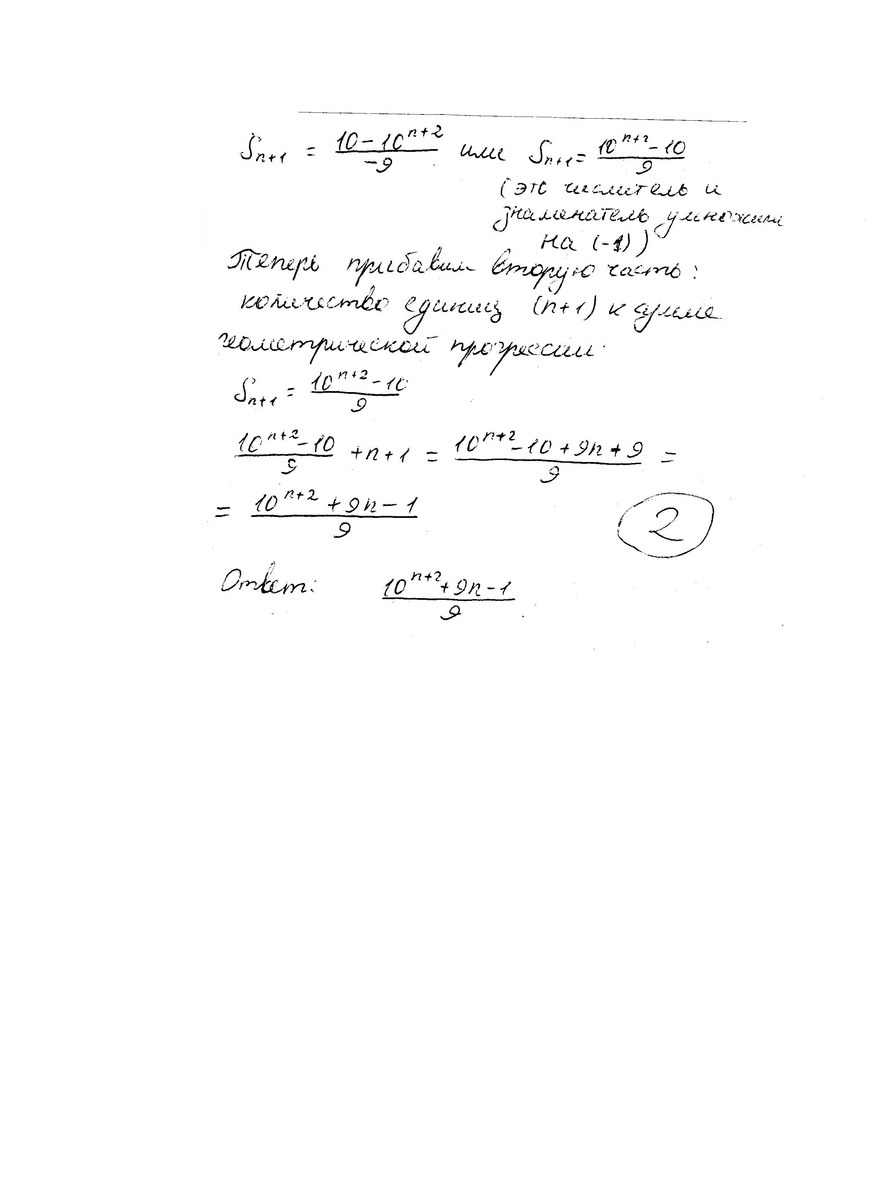 S_{n+1} = \frac{10-10^{n+2}}{-9} или S_{n+1} = \frac{10^{n+2}-10}{9}
(это числитель и
знаменатель умножили
на (-1))
Теперь прибавим вторую часть:
количество единиц (n+1) к сумме
геометрической прогрессии.
S_{n+1} = \frac{10^{n+2}-10}{9}
\frac{10^{n+2}-10}{9} + n + 1 = \frac{10^{n+2}-10+9n+9}{9} =
= \frac{10^{n+2}+9n-1}{9}
2
Ответ: \frac{10^{n+2}+9n-1}{9}